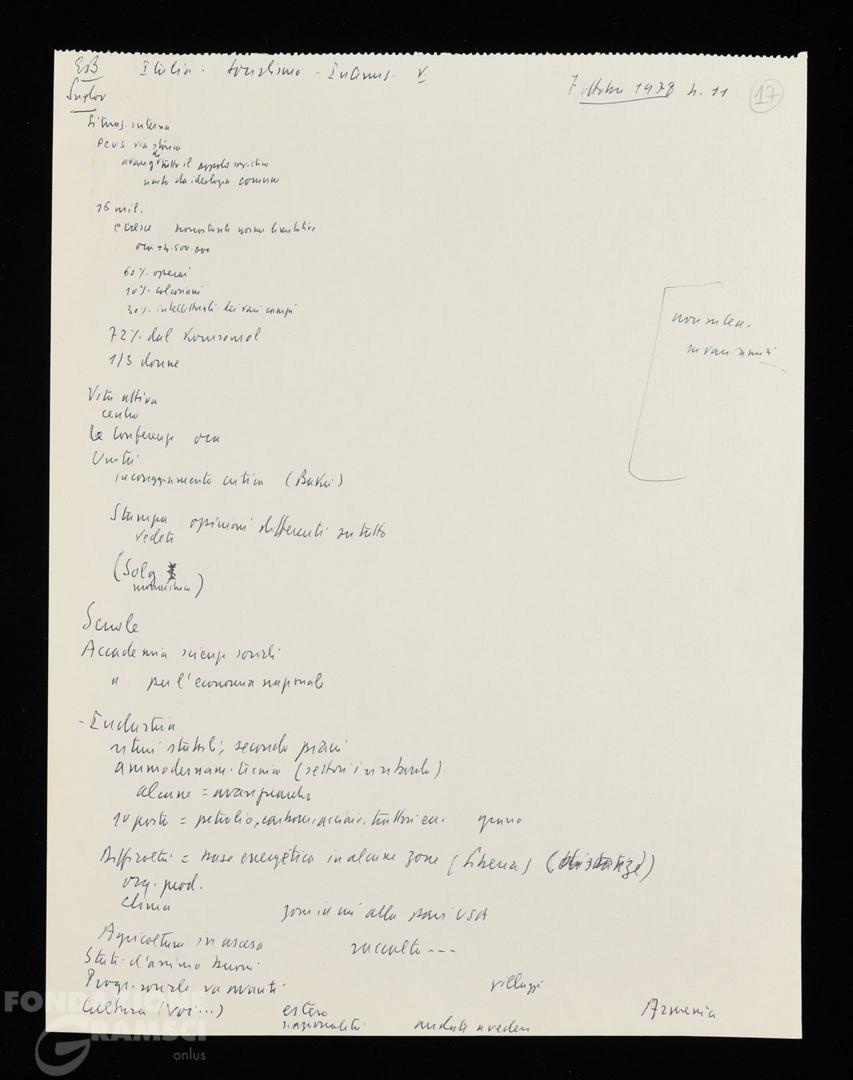 EB Italia.
7 ottobre 1978 h. 11
17
Suslov
Situaz. interna
PCUS via storica
tutto il popolo sovietico
unito da ideologia comune
16 mil.
cresce nonostante norme limitative
60% operai
10% colcosiani
30% intellettuali dei vari campi
72% dal Komsomol
1/3 donne
non
Vita attiva
centro
le conferenze ora
Unità
incoraggiamento critica (Baku)
Stampa opinioni differenti su tutto
vedete
(Solg.
)
Scuole
Accademia scienze sociali
" per l'economia nazionale
- Industria
ritmi stabili, secondo piani
ammodernam. tecnico (settori in ritardo)
alcune = avanguardia
1o posto = petrolio, carbone, acciaio, trattori ecc. grano
Difficoltà = base energetica in alcune zone (Siberia) (distanze)
org. prod.
clima
zone in cui alla pari USA
Agricoltura in ascesa raccolto ---
Stati d'animo buoni
Progr. sociale va avanti villaggi
Cultura (voi...) estero Armenia
nazionalità andate a vedere
FONDAZIONE
GRAMSCI
onlus